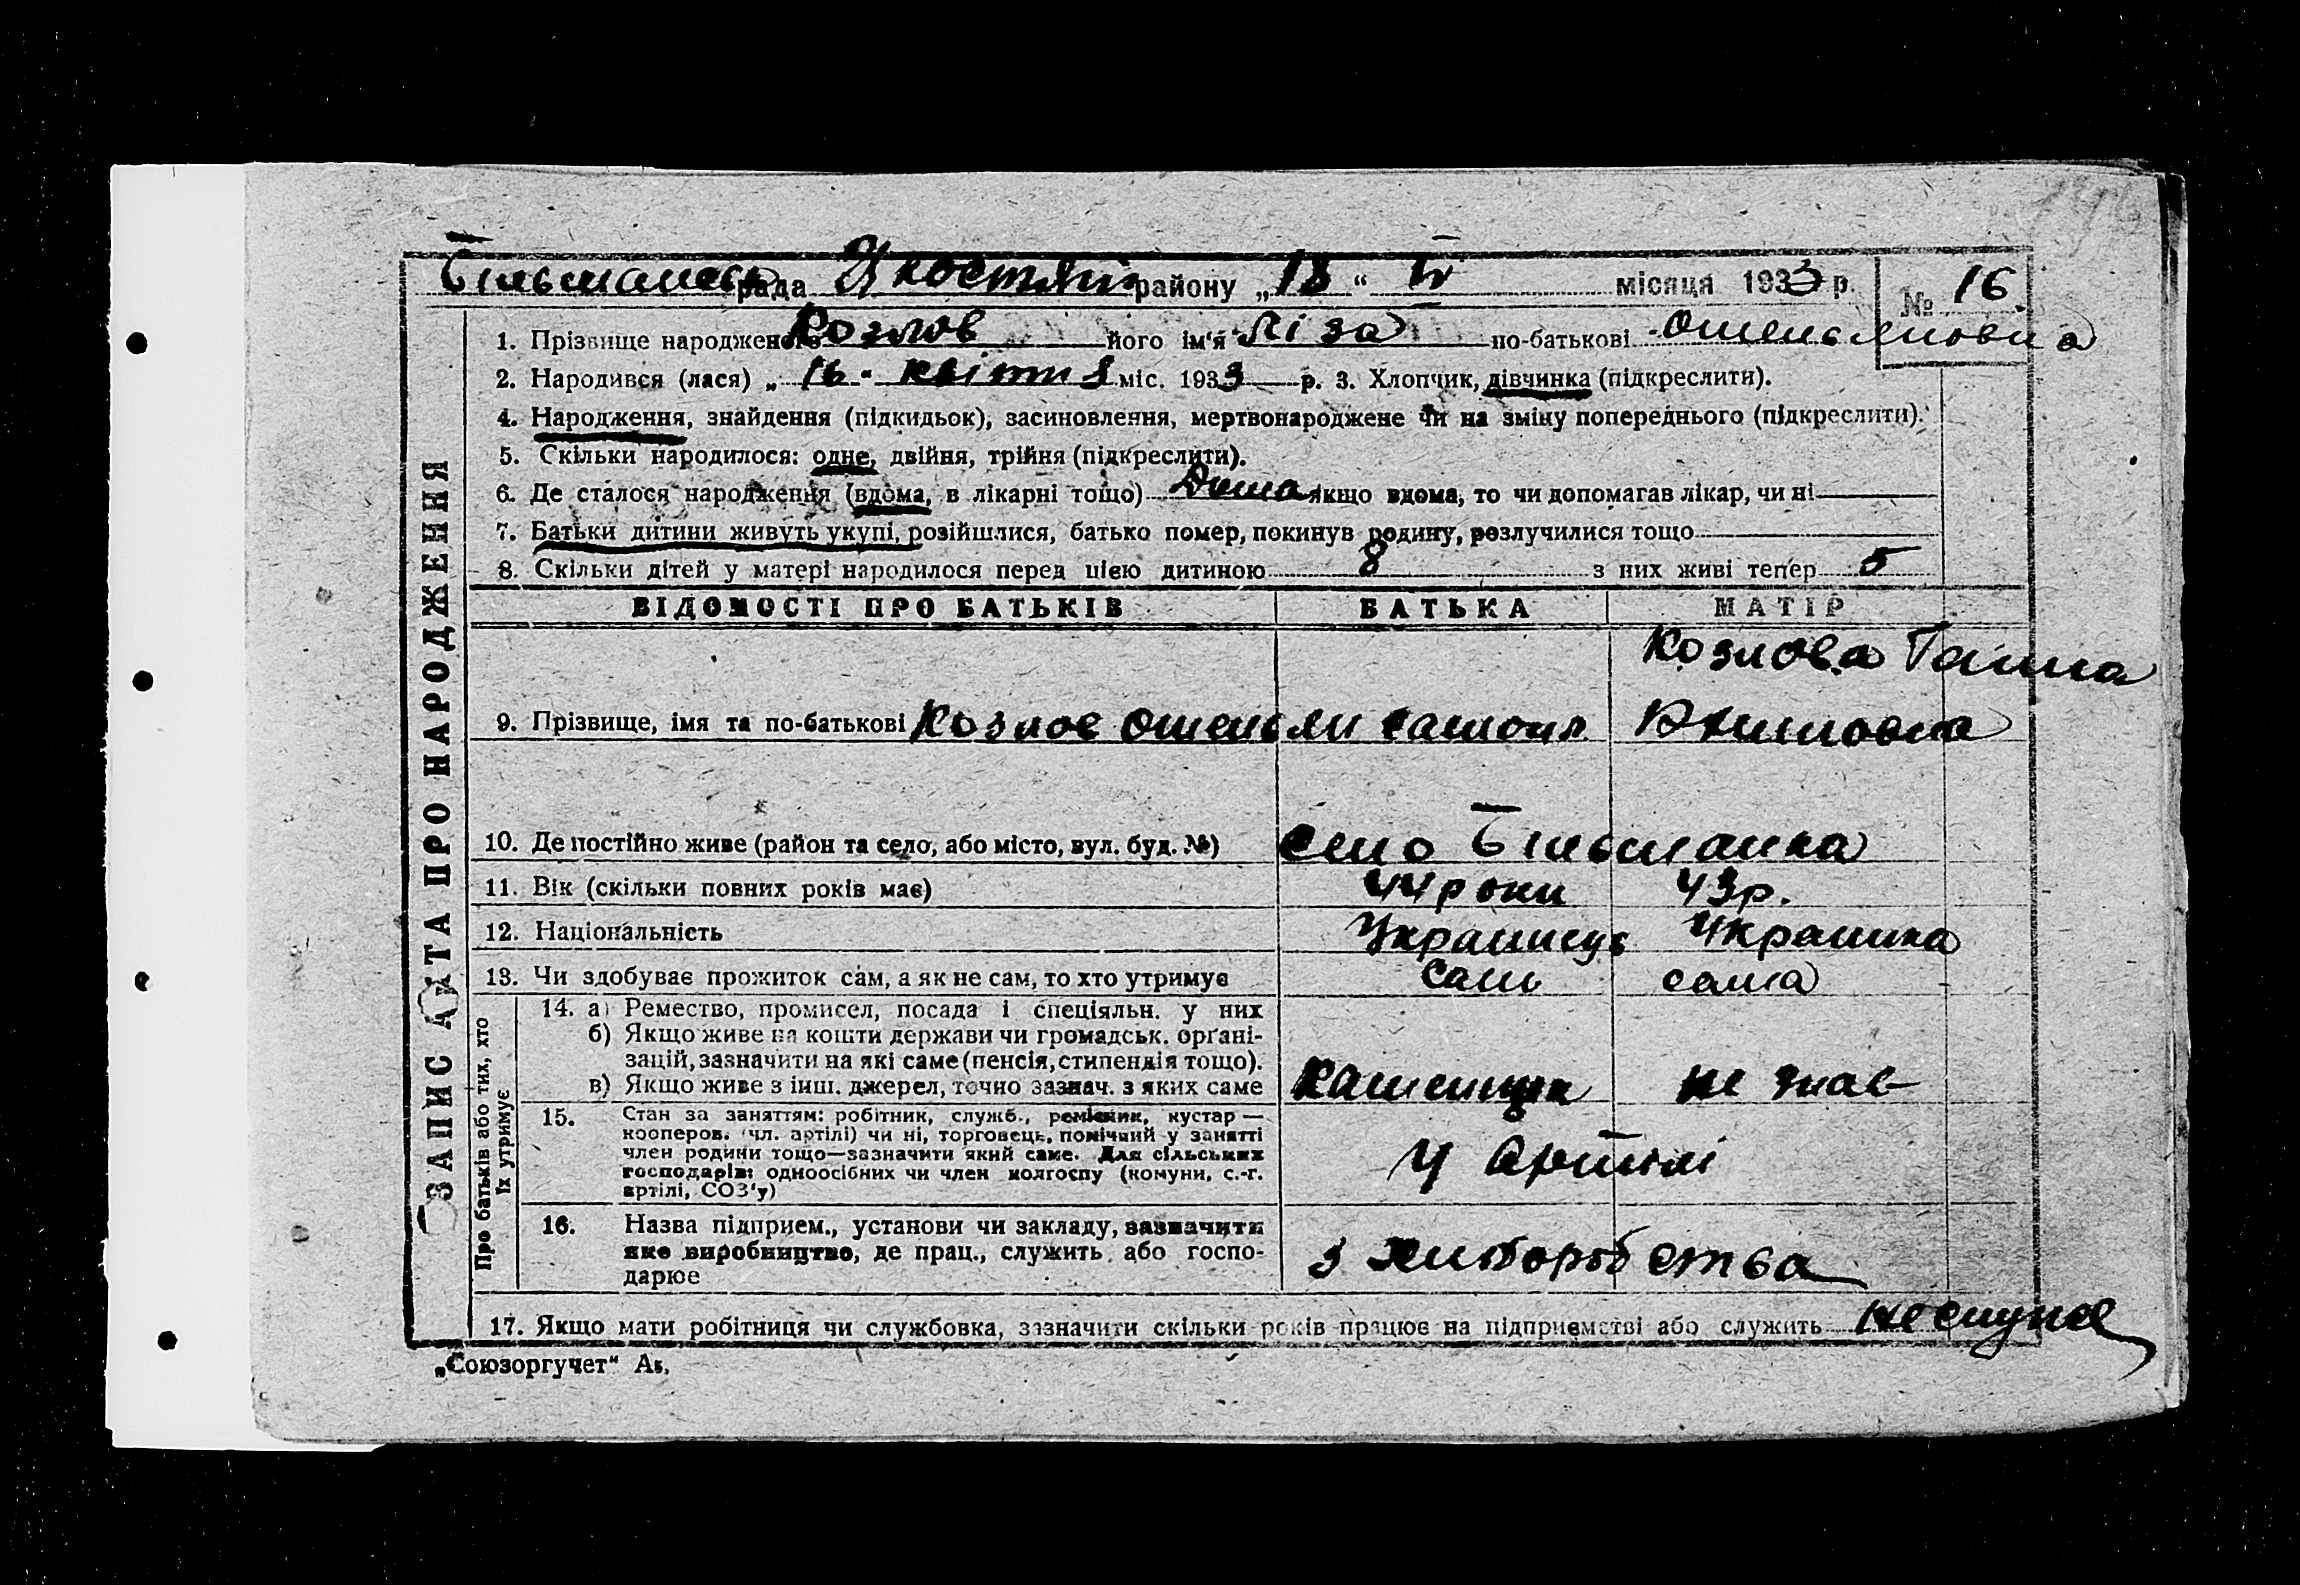 Більманська рада районну „18“ IV місяця 1933 р. № 16
1. Прізвище народженого Козлов його ім'я Ліза по-батькові Омельяновна
2. Народився (лася) „16" квітня міс. 1933 р. 3. Хлопчик, дівчинка (підкреслити).
4. Народження, знайдення (підкидьок), засиновлення, мертвонароджене чи на зміну попереднього (підкреслити).
5. Скільки народилося: одне, двійня, трійня (підкреслити).
6. Де сталося народження (вдома, в лікарні тощо) Дома якщо вдома, то чи допомагав лікар, чи ні
7. Батьки дитини живуть укупі, розійшлися, батько помер, покинув родину, розлучилися тощо
8. Скільки дітей у матері народилося перед цією дитиною 8 з них живі тепер 5
ВІДОМОСТІ ПРО БАТЬКІВ БАТЬКА МАТІР
Козлова Ганна
9. Прізвище, імя та по-батькові Козлов Омельян
10. Де постійно живе (район та село, або місто, вул. буд. №) село Більманка
11. Вік (скільки повних років має) 44 роки 43 р.
12. Національність Українець Українка
13. Чи здобуває прожиток сам, а як не сам, то хто утримує сам сама
14. а) Ремество, промисел, посада і спеціяльн. у них
б) Якщо живе на кошти держави чи громадськ. орґані-
зацій, зазначити на які саме (пенсія, стипендія тощо).
в) Якщо живе з інш. джерел, точно зазнач. з яких саме Каменщик не має
15. Стан за заняттям: робітник, служб., ремісник, кустар —
кооперов. (чл. артілі) чи ні, торговець, помічний у занятті
член родини тощо—зазначити який саме. Для сільських
господарів: одноосібних чи член колгоспу (комуни, с.-г.
артілі, СОЗ'у) У Артілі
16. Назва підприєм., установи чи закладу, зазначити
яке виробництво, де прац., служить або госпо-
дарює з хліборобства
17. Якщо мати робітниця чи службовка, зазначити скільки років працює на підприємстві або служить
ЗАПИС АКТА ПРО НАРОДЖЕННЯ
Про батьків або тих, хто
їх утримує
„Союзоргучет“